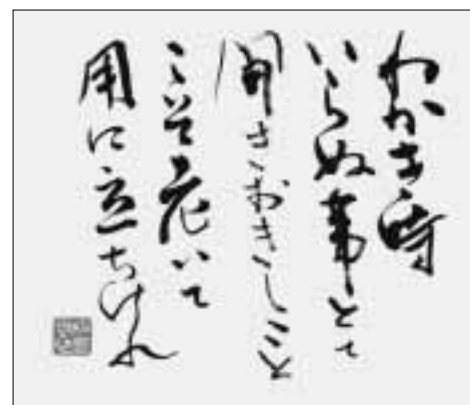 わかき時
いらぬ事とて
聞きおきしこと
こそ老いて
用に立ちけれ